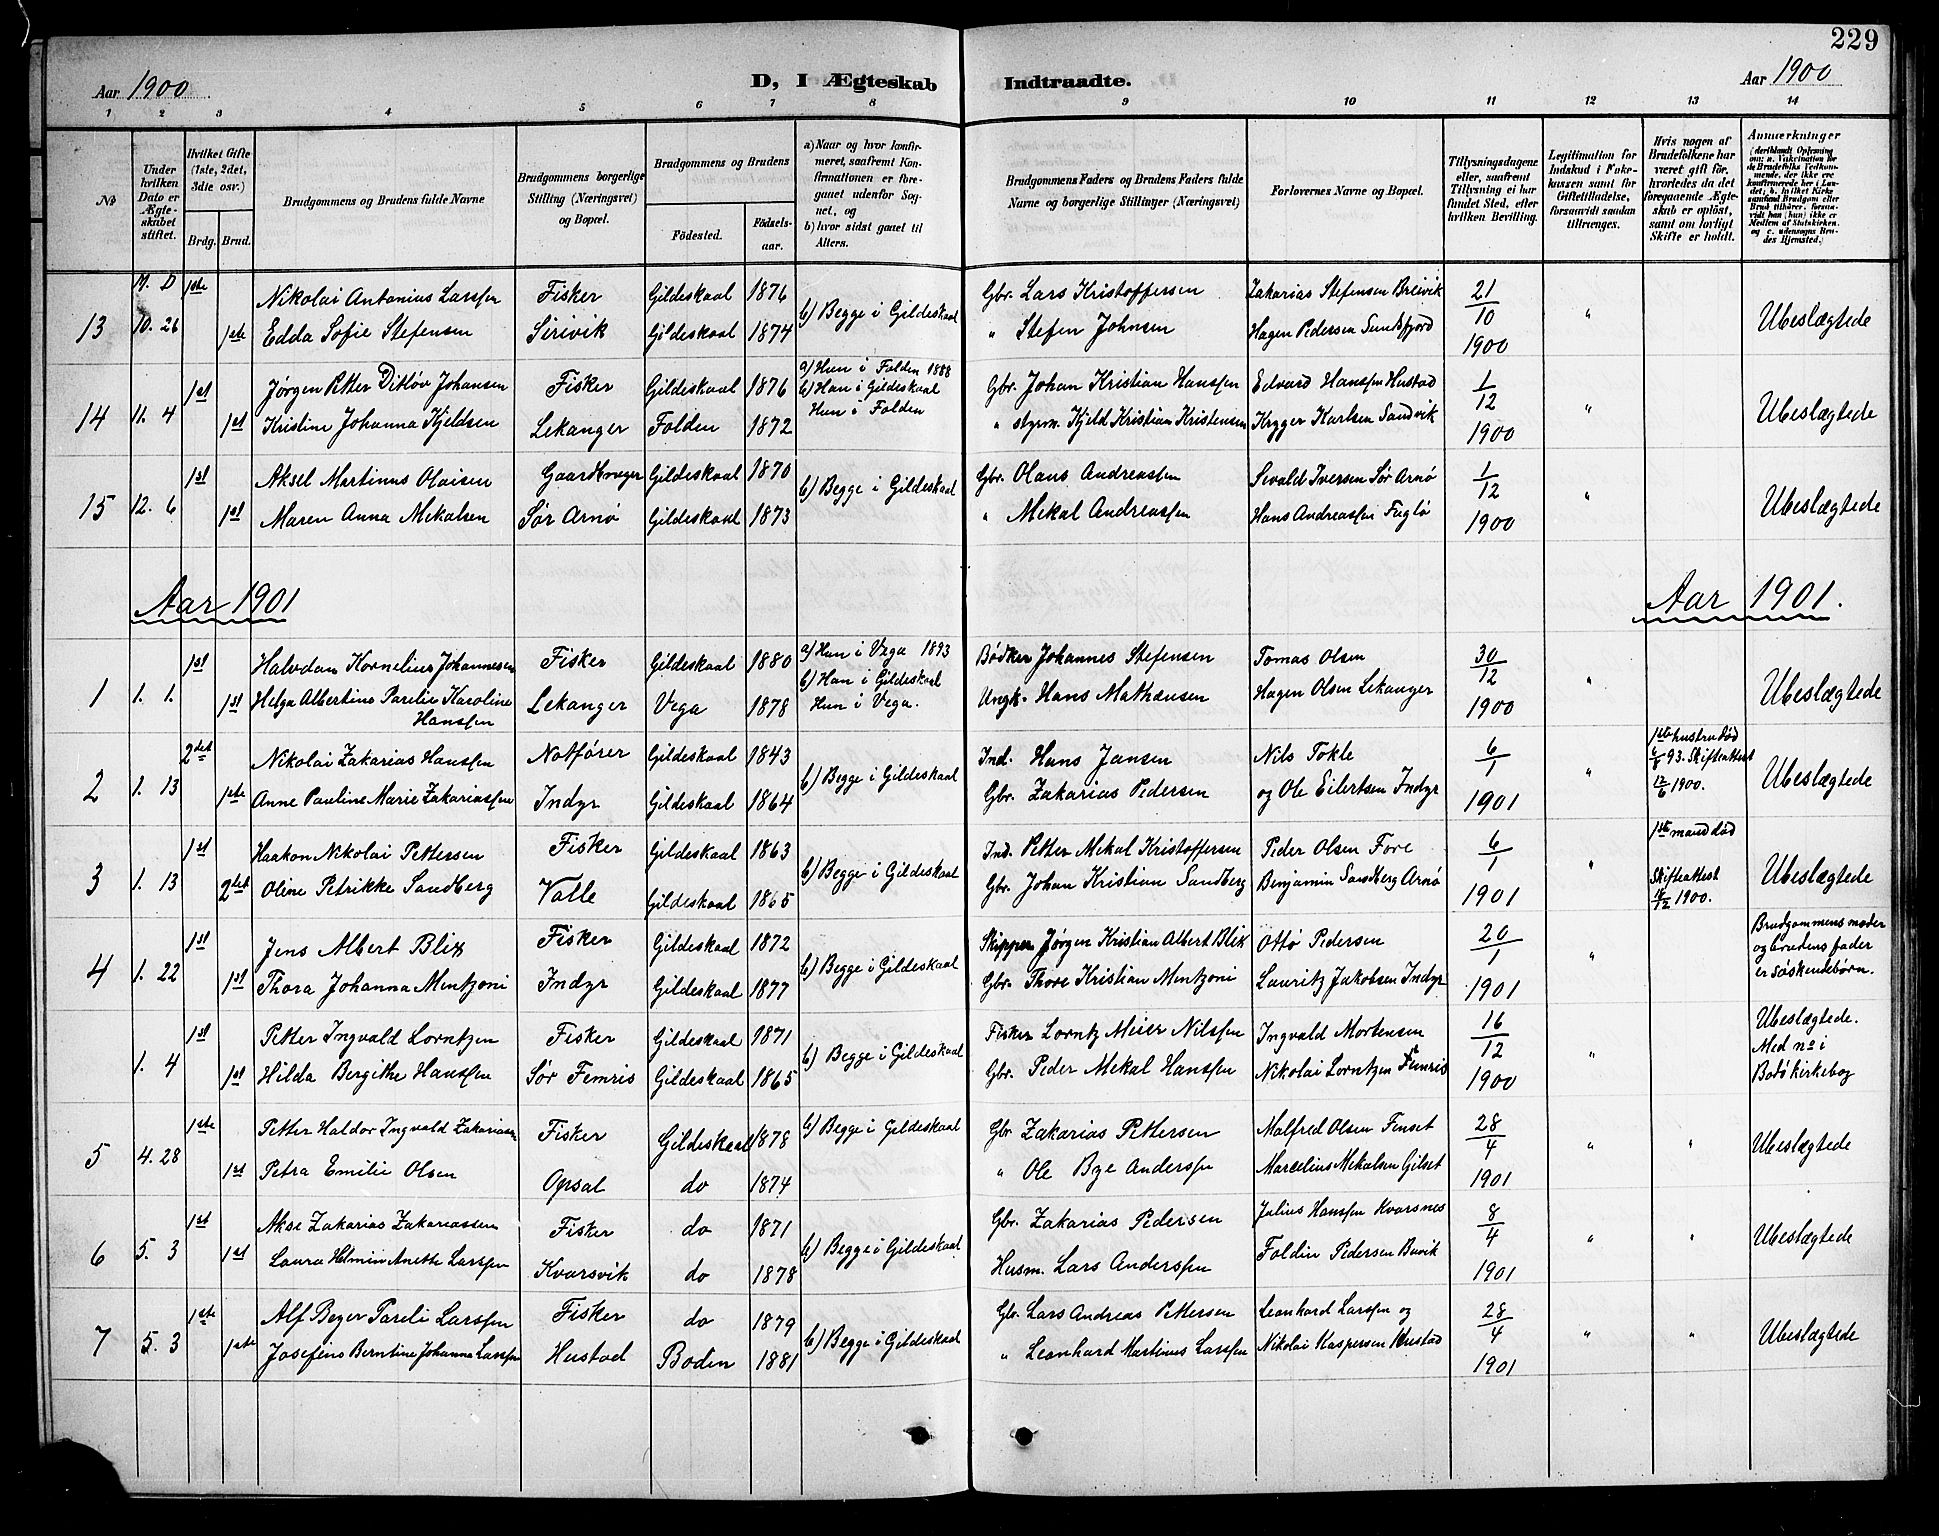 229
Aar 1900
D, I Ægteskab Indtraadte.
Aar 1900
1 2 3 4 5 6 7 8 9 10 11 12 13 14
No
Under hvilken Dato er Ægteskabet stiftet.
Hvilket Gifte (1ste, 2det, 3die osv.)
Brdg. Brud.
Brudgommens og Brudens fulde Navne
Brudgommens borgerlige Stilling (Næringsvei) og Bopæl.
Brudgommens og Brudens
Fødested. Fødselsaar.
a) Naar og hvor konfirmeret, saafremt Konfirmationen er foregaaet udenfor Sognet, og
b) hvor sidst gaaet til Alters.
Brudgommens Faders og Brudens Faders fulde Navne og borgerlige Stillinger (Næringsvei)
Forlovernes Navne og Bopæl.
Tillysningsdagene eller, saafremt Tillysning ei har fundet Sted, efter hvilken Bevilling.
Legitimation for Indskud i Fukekassen samt for Giftetilladelse, forsaavidt saadan tiltrænges.
Hvis nogen af Brudefolkene har været gift før, hvorledes da det foregaaende Ægteskab er opløst, samt om lovligt Skifte er holdt.
Anmærkninger
13 10. 26 1ste Nikolai Antonius Larssen Fisker Gildeskaal 1876 b) Begge i Gildeskaal Gbr. Lars Kristoffersen Zakarias Stefensen Breivik 21/10 1900 " Ubeslægtede
1ste Edda Sofie Stefensen Sirivik Gildeskaal 1874 " Stefen Johnsen Hagen Pedersen Sundsfjord
14 11. 4 1st Jørgen Petter Ditløv Johansen Fisker Gildeskaal 1876 a) Hun i Folden 1888 b) Han i Gildeskaal Hun i Folden Gbr. Johan Kristian Hanssen Edvard Hanssen Hustad 1/12 1900 " Ubeslægtede
1st Kristine Johanna Kjeldsen Lekanger Folden 1872 " styrm. Kjeld Kristian Kristensen Krygger Karlsen Sandvik
15 12. 6 1st Aksel Martinus Olaisen Gaardbruger Gildeskaal 1870 b) Begge i Gildeskaal Gbr. Olaus Andreassen Sevald Iversen Sør Arnø 1/12 1900 " Ubeslægtede
1st Maren Anna Mekalsen Sør Arnø Gildeskaal 1873 " Mekal Andreassen Hans Andreassen Fuglø
Aar 1901 Aar 1901.
1 1. 1. 1st Halvdan Kornelius Johannesen Fisker Gildeskaal 1880 a) Hun i Vega 1893 b) Han i Gildeskaal Hun i Vega. Bødker Johannes Stefensen Tomas Olsen 30/12 1900 " Ubeslægtede
1st Helga Albertine Parelie Karoline Hanssen Lekanger Vega 1878 Ungk. Hans Mathæusen Hagen Olsen Lekanger
2 1. 13 2det Nikolai Zakarias Hanssen Notfører Gildeskaal 1843 b) Begge i Gildeskaal Ind. Hans Jansen Nils Tokle 6/1 1901 " 1ste hustru død 6/8 93. Skifteattest 12/6 1900. Ubeslægtede
1ste Anne Pauline Marie Zakariassen Indyr Gildeskaal 1864 Gbr. Zakarias Pedersen og Ole Eilertsen Indyr
3 1. 13 1st Haakon Nikolai Pettersen Fisker Gildeskaal 1863 b) Begge i Gildeskaal Ind. Petter Mekal Kristoffersen Peder Olsen Fore 6/1 1901 " 1ste mand død Skifteattest 15/12 1900. Ubeslægtede
2det Oline Petrikke Sandberg Valle Gildeskaal 1865 Gbr. Johan Kristian Sandberg Benjamin Sandberg Arnø
4 1. 22 1st Jens Albert Blix Fisker Gildeskaal 1872 b) Begge i Gildeskaal Skipper Jørgen Kristian Albert Blix Otto Pedersen 20/1 1901 " Brudgommens moder og brudens fader er søskendebørn.
1st Thora Johanna Mentzoni Indyr Gildeskaal 1877 Gbr. Thore Kristian Mentzoni Lauritz Jakobsen Indyr
1. 4 1st Petter Ingvald Lorntzen Fisker Gildeskaal 1871 b) Begge i Gildeskaal Fisker Lorntz Meier Nilssen Ingvald Mortensen 16/12 1900 " Ubeslægtede. Med no i Bodø kirkebog
1st Hilda Bergithe Hanssen Sør Femris Gildeskaal 1865 Gbr. Peder Mekal Hanssen Nikolai Lorntzen Femris
5 4. 28 1ste Petter Haldor Ingvald Zakariasen Fisker Gildeskaal 1878 b) Begge i Gildeskaal Gbr Zakarias Pettersen Malfred Olsen Finset 28/4 1901 " " Ubeslægtede
1st Petra Emilie Olsen Opsal do 1874 " Ole Bye Anderssen Marcelius Mekalsen Gilset
6 5. 3 1st Akse Zakarias Zakariassen Fisker do 1871 b) Begge i Gildeskaal Gbr. Zakarias Pedersen Julius Hanssen Kvarsnes 8/4 1901 " " Ubeslægtede
1st Laura Helmin Anette Larssen Kvarsvik do 1878 Husm. Lars Anderssen Foldin Pedersen Buvik
7 5. 3 1ste Alf Beyer Pareli Larssen Fisker do 1879 b) Begge i Gildeskaal Gbr. Lars Andreas Pettersen Leonhard Larssen og 28/4 1901 " " Ubeslægtede
1ste Josefine Berntine Johanna Larssen Hustad Bodin 1881 " Leonhard Martinus Larssen Nikolai Kaspersen Hustad